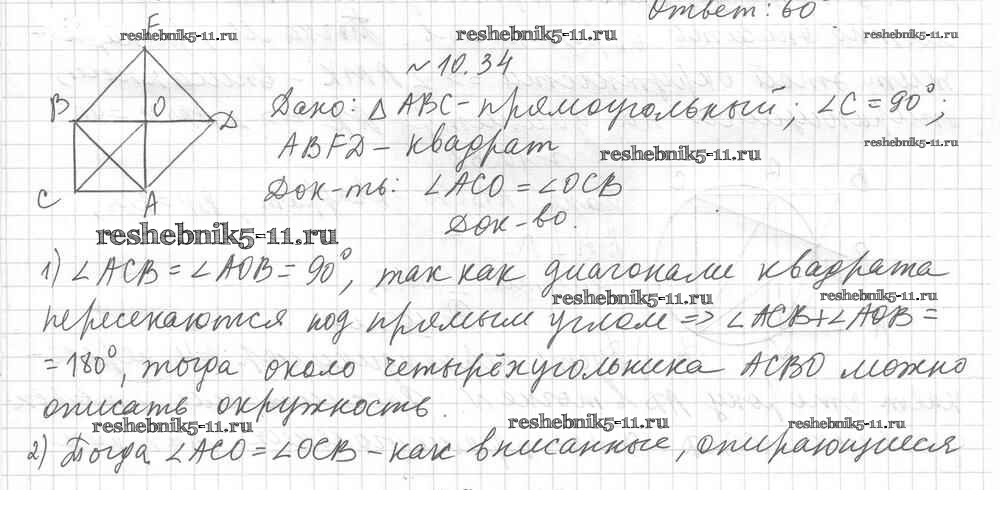 Ответ: 60°
F
reshebnik5-11.ru reshebnik5-11.ru reshebnik5-11.ru
~ 10.34
B O D
Дано: △ ABC - прямоугольный; ∠C = 90°;
ABFD - квадрат
reshebnik5-11.ru reshebnik5-11.ru
Док-ть: ∠ACO = ∠OCB
C A
Док-во.
reshebnik5-11.ru
1) ∠ACB = ∠AOB = 90°, так как диагонали квадрата
reshebnik5-11.ru reshebnik5-11.ru
пересекаются под прямым углом => ∠ACB + ∠AOB =
= 180°, тогда около четырёхугольника ACBO можно
описать окружность.
reshebnik5-11.ru reshebnik5-11.ru reshebnik5-11.ru
2) Тогда ∠ACO = ∠OCB - как вписанные, опирающиеся